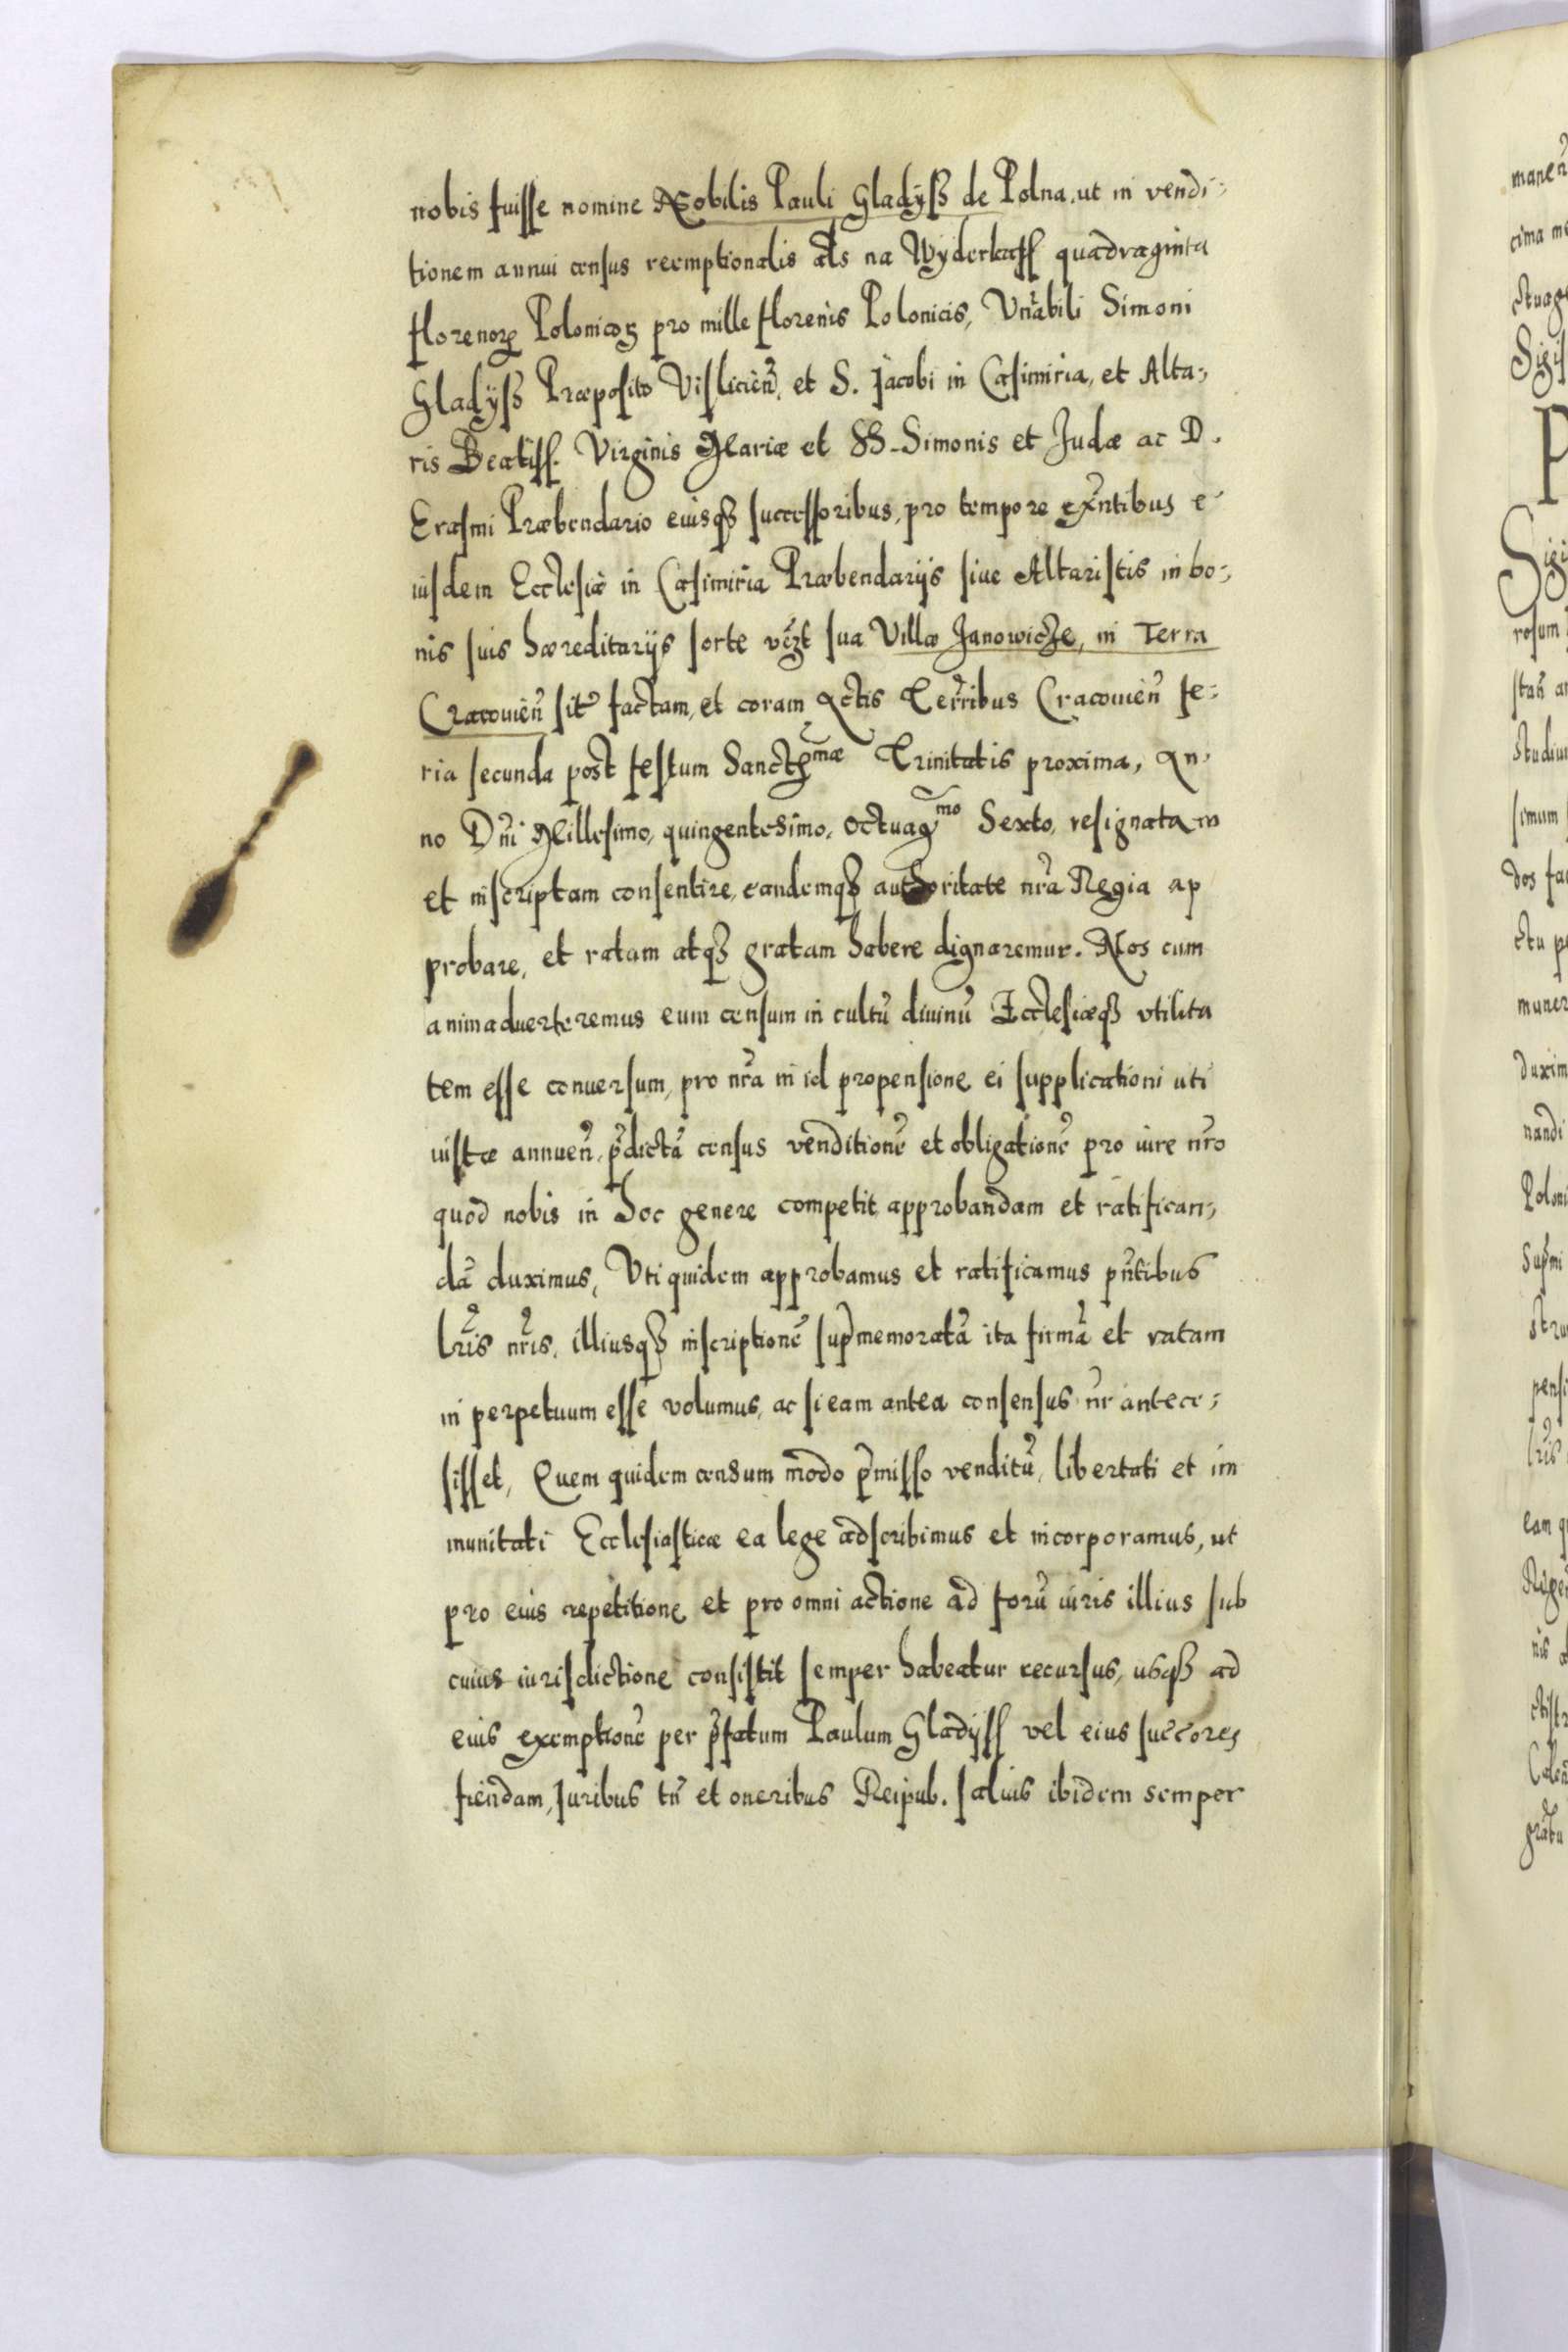 nobis fuisse nomine Nobilis Pauli Gladyß de Polna, ut in vendi-
tionem annui census reemptionalis als na Wyderkaff quadraginta
florenoꝝ Polonicoꝝ pro mille florenis Polonicis, Vnr̃abili Simoni
Gladyß Præposito Visliciẽn, et S. Jacobi in Casimiria, et Alta-
ris Beatiss. Virginis Mariæ et SS. Simonis et Judæ ac D.
Erasmi Præbendario eiusqꝫ successoribus, pro tempore exñtibus e
iusdem Ecclesiæ in Casimiria Præbendarijs siue Altaristis in bo-
nis suis hæreditarijs sorte vczt sua Villæ Janowicze, in Terra
Cracouieñ sit̃ factam, et coram Actis Terr̃ibus Cracouieñ fe-
ria secunda post festum Sanctꝭmæ Trinitatis proxima, An-
no Dñi Millesimo, quingentesimo, octuagmo Sexto, resignatam
et inscriptam consentire, eandemqꝫ authoritate nr̃a Regia ap
probare, et ratam atqꝫ gratam habere dignaremur. Nos cum
animaduerteremus eum censum in cultũ diuinũ Ecclesiæqꝫ vtilita
tem esse conuersum, pro nr̃a in id propensione ei supplicationi uti
iustæ annueñ, p̃dictã census venditionẽ et obligationẽ pro iure nr̃o
quod nobis in hoc genere competit approbandam et ratifican-
dã duximus, Vti quidem approbamus et ratificamus pñtibus
lr̃is nr̃is, illiusqꝫ inscriptionẽ sup̃memoratã ita firmã et ratam
in perpetuum esse volumus, ac si eam antea consensus nr̃ antece-
sisset, Quem quidem censum modo p̃misso venditũ, libertati et im
munitati Ecclesiasticæ ea lege adscribimus et incorporamus, ut
pro eius repetitione et pro omni actione ad forũ iuris illius sub
cuius iurisdictione consistit semper habeatur recursus, usqꝫ ad
eius exemptionẽ per p̃fatum Paulum Gladyss vel eius succores
fiendam, Juribus tñ et oneribus Reipub. saluis ibidem semper